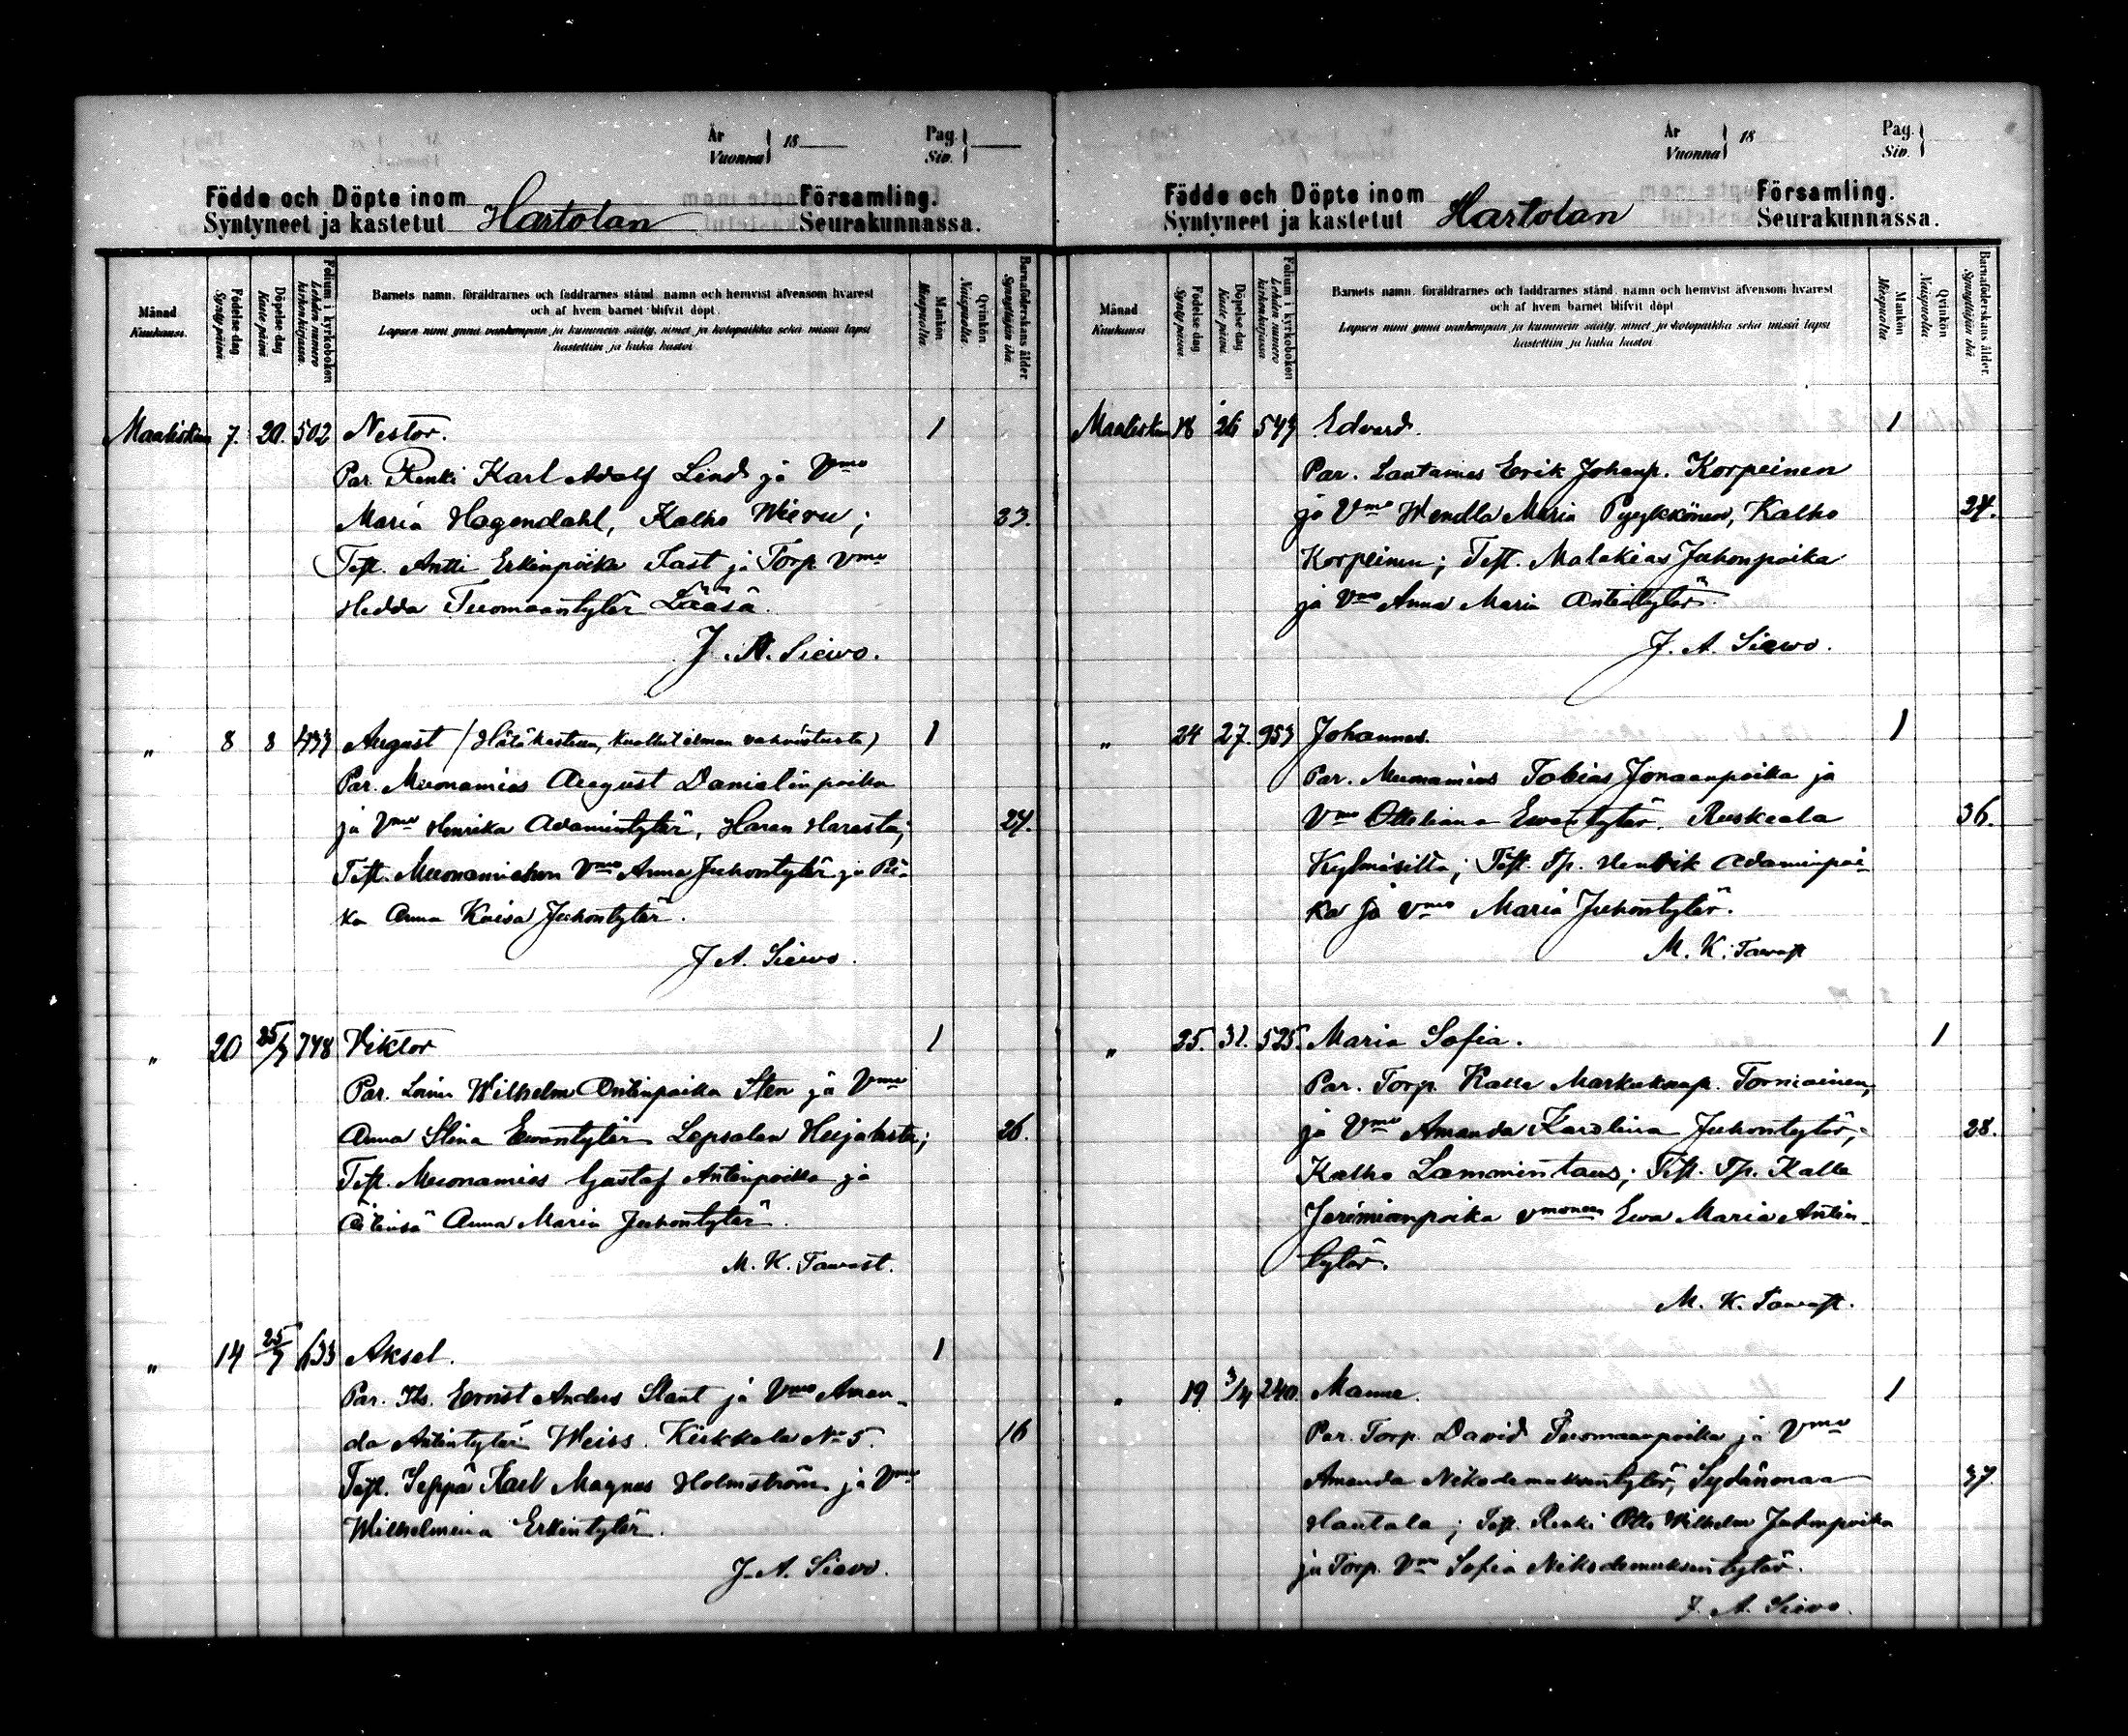 År
Vuonna } 18
Pag.
Siv. }
Födde och Döpte inom
Syntyneet ja kastetut Hartolan
Församling.
Seurakunnassa.
Månad
Kuukausi.
Födelse dag
Synty päivä.
Döpelse dag
Kaste päivä
Folium i kyrkoboken
Lehden numero kirkonkirjassa.
Barnets namn, föräldrarnes och faddrarnes stånd, namn och hemvist äfvensom hvarest
och af hvem barnet blifvit döpt.
Lapsen nimi ynnä vanhempain ja kummein sääty, nimet ja kotopaikka sekä missä lapsi
kastettiin ja kuka kastoi
Mankön
Miespuolia.
Qvinkön
Naispuolia.
Barnaföderskans ålder
Synnyttäjän ikä.
Maaliskuu 7. 20. 502 Nestor. 1
Par. Renki Karl Adolf Lind ja Vmo
Maria Hagendahl, Kalho Wieru; 33.
Test. Antti Erkinpoika Fast ja Torp. Vmo
Hedda Tuomaantytär Lääsä.
J. A. Siewo.
" 8 8 433 August (Hätäkasteen, kuollut ilman vahvistusta) 1
Par. Muonamies August Danielinpoika
ja Vmo Henrika Adamintytär, Haran Harasta; 24.
Test. Muonamiehen Vmo Anna Juhontytär ja Pii-
ka Anna Kaisa Juhontytär.
J. A. Siewo.
" 20 25/3 748 Viktor 1
Par. Wilhelm Antinpoika Sten ja Vmo
Anna Stina Ewantytär Lepsalan 26.
Test. Muonamies Gustaf Antinpoika ja
Äitinsä Anna Maria Juhontytär.
M. K. Tawast.
" 14 25/3 633 Aksel. 1
Par. Ernst Anders Slant ja Vmo Aman-
da Antintytär Weiss. Kirkkola No 5. 16
Test. Seppä Karl Magnus Holmström ja Vmo
Wilhelmina Erkintytär.
J. A. Siewo.
År
Vuonna } 18
Pag.
Siv. }
Födde och Döpte inom
Syntyneet ja kastetut Hartolan
Församling.
Seurakunnassa.
Månad
Kuukausi
Födelse dag
Synty päivä.
Döpelse dag
Kaste päivä
Folium i kyrkoboken
Lehden numero kirkonkirjassa
Barnets namn, föräldrarnes och faddrarnes stånd, namn och hemvist äfvensom hvarest
och af hvem barnet blifvit döpt
Lapsen nimi ynnä vanhempain ja kummein sääty, nimet ja kotopaikka sekä missä lapsi
kastettiin ja kuka kastoi
Mankön
Miespuolia.
Qvinkön
Naispuolia.
Barnaföderskans ålder.
Synnyttäjän ikä.
Maaliskuu 18 26 543 Edvard. 1
Par. Lautames Erik Johanp. Korpeinen
ja Vmo Wendla Maria Pyykkönen, Kalho 24.
Korpeinen; Test. Malakias Juhonpoika
ja Vmo Anna Maria Antintytär.
J. A. Siewo.
" 24 27. 953 Johannes. 1
Par. Muonamies Tobias Jonaanpoika ja
Vmo Ottiliana Ewantytär. Ruskeala 36.
Kylmäsilta; Test. Tp. Henrik Adaminpoi-
ka ja Vmo Maria Juhontytär.
M. K. Tawast
" 25. 31. 525. Maria Sofia. 1
Par. Torp. Kalle Markukenp. Torniainen,
ja Vmo Amanda Karolina Juhontytär; 28.
Kalho Lammintaus; Test. Tp. Kalle
Jerimianpoika Vmoneen Ewa Maria Antin-
tytär.
M. K. Tawast.
" 19 3/4 240. Manne. 1
Par. Torp. David Tuomaanpoika ja Vmo
Amanda Nikodemuksentytär, Sydänmaa 37.
Hautala; Test. Renki Otto Wilhelm Juhonpoika
ja Torp. Vmo Sofia Nikodemuksentytär.
J. A. Siewo.